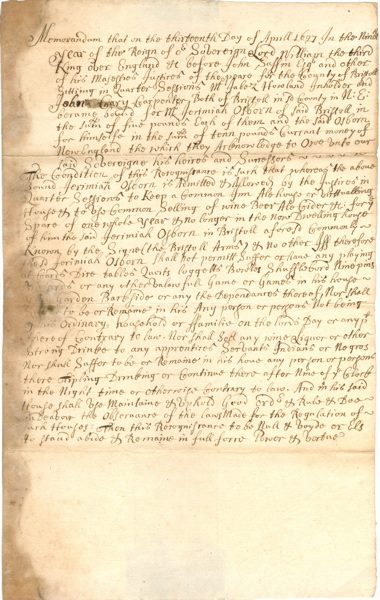 Memorandum that on the thirteenth Day of Aprill 1697 In the Ninth
year of the Reign of oʳ Sovereigne Lord William the third
King over England &c before John Saffin Esqʳ and other
of his Majesties Justices of the peace for the County of Bristoll
Sitting in Quarter Sessions Mʳ Jabez Howland Inholder and
John Cary Carpenter Both of Bristoll in yᵉ County
became bound for Mʳ Jeremiah Osborn of said Bristoll in
the Sum of five pounds Each of them and the said Osborn
for himselfe in the Sum of tenn pounds Currant money of
New England the which they Acknowledge to Owe unto our
Said Sovereigne his heires and Sucessors
The Condition of this Recognisance is Such that whereas the above
bound Jerimiah Osborn is Admitted & Allowed by the Justices in
Quarter Sessions to Keep a Common Inn Alehouse or Victualling
House & to Use Common Selling of wine Beer Ale Cider &c for yᵉ
Space of one whole year & no longer in the now Dwelling house
of him the said Jerimiah Osborn in Bristoll aforesᵈ Commonly
Known by the Signe of the Bristoll Arms & no other If therefore
said Jerimiah Osborn Shall not permitt Suffer or have any playing
at Cards Dice tables Quoits loggetts Boweles Shuffleboard Ninepins
or any other unlawfull Game or Games in his house
Garden Backside or any the Dependances thereof Nor Shall
to be or Remaine in his Any person or persons Not being
his Ordinary household or Familie on the lords Day or any pᵗ
thereof Contrary to law. Nor Shall Sell any wine Liquor or other
Strong Drinke to any apprentices Servants Indians or Negros
Nor Shall Suffer to be or Remaine in his house any person or persons
there Tipling Drinking or Continue there after Nine of yᵉ Clock
in the Night time or otherwise Contrary to law. And in his said
House shall Use Maintaine & Uphold Good Ordʳ & Rule & Doe
Endeavor the Observance of the laws Made for the Regulation of
such Houses Then this Recognisance to be Null & voyde or Els
to stand abide & Remaine in full force Power & vertue